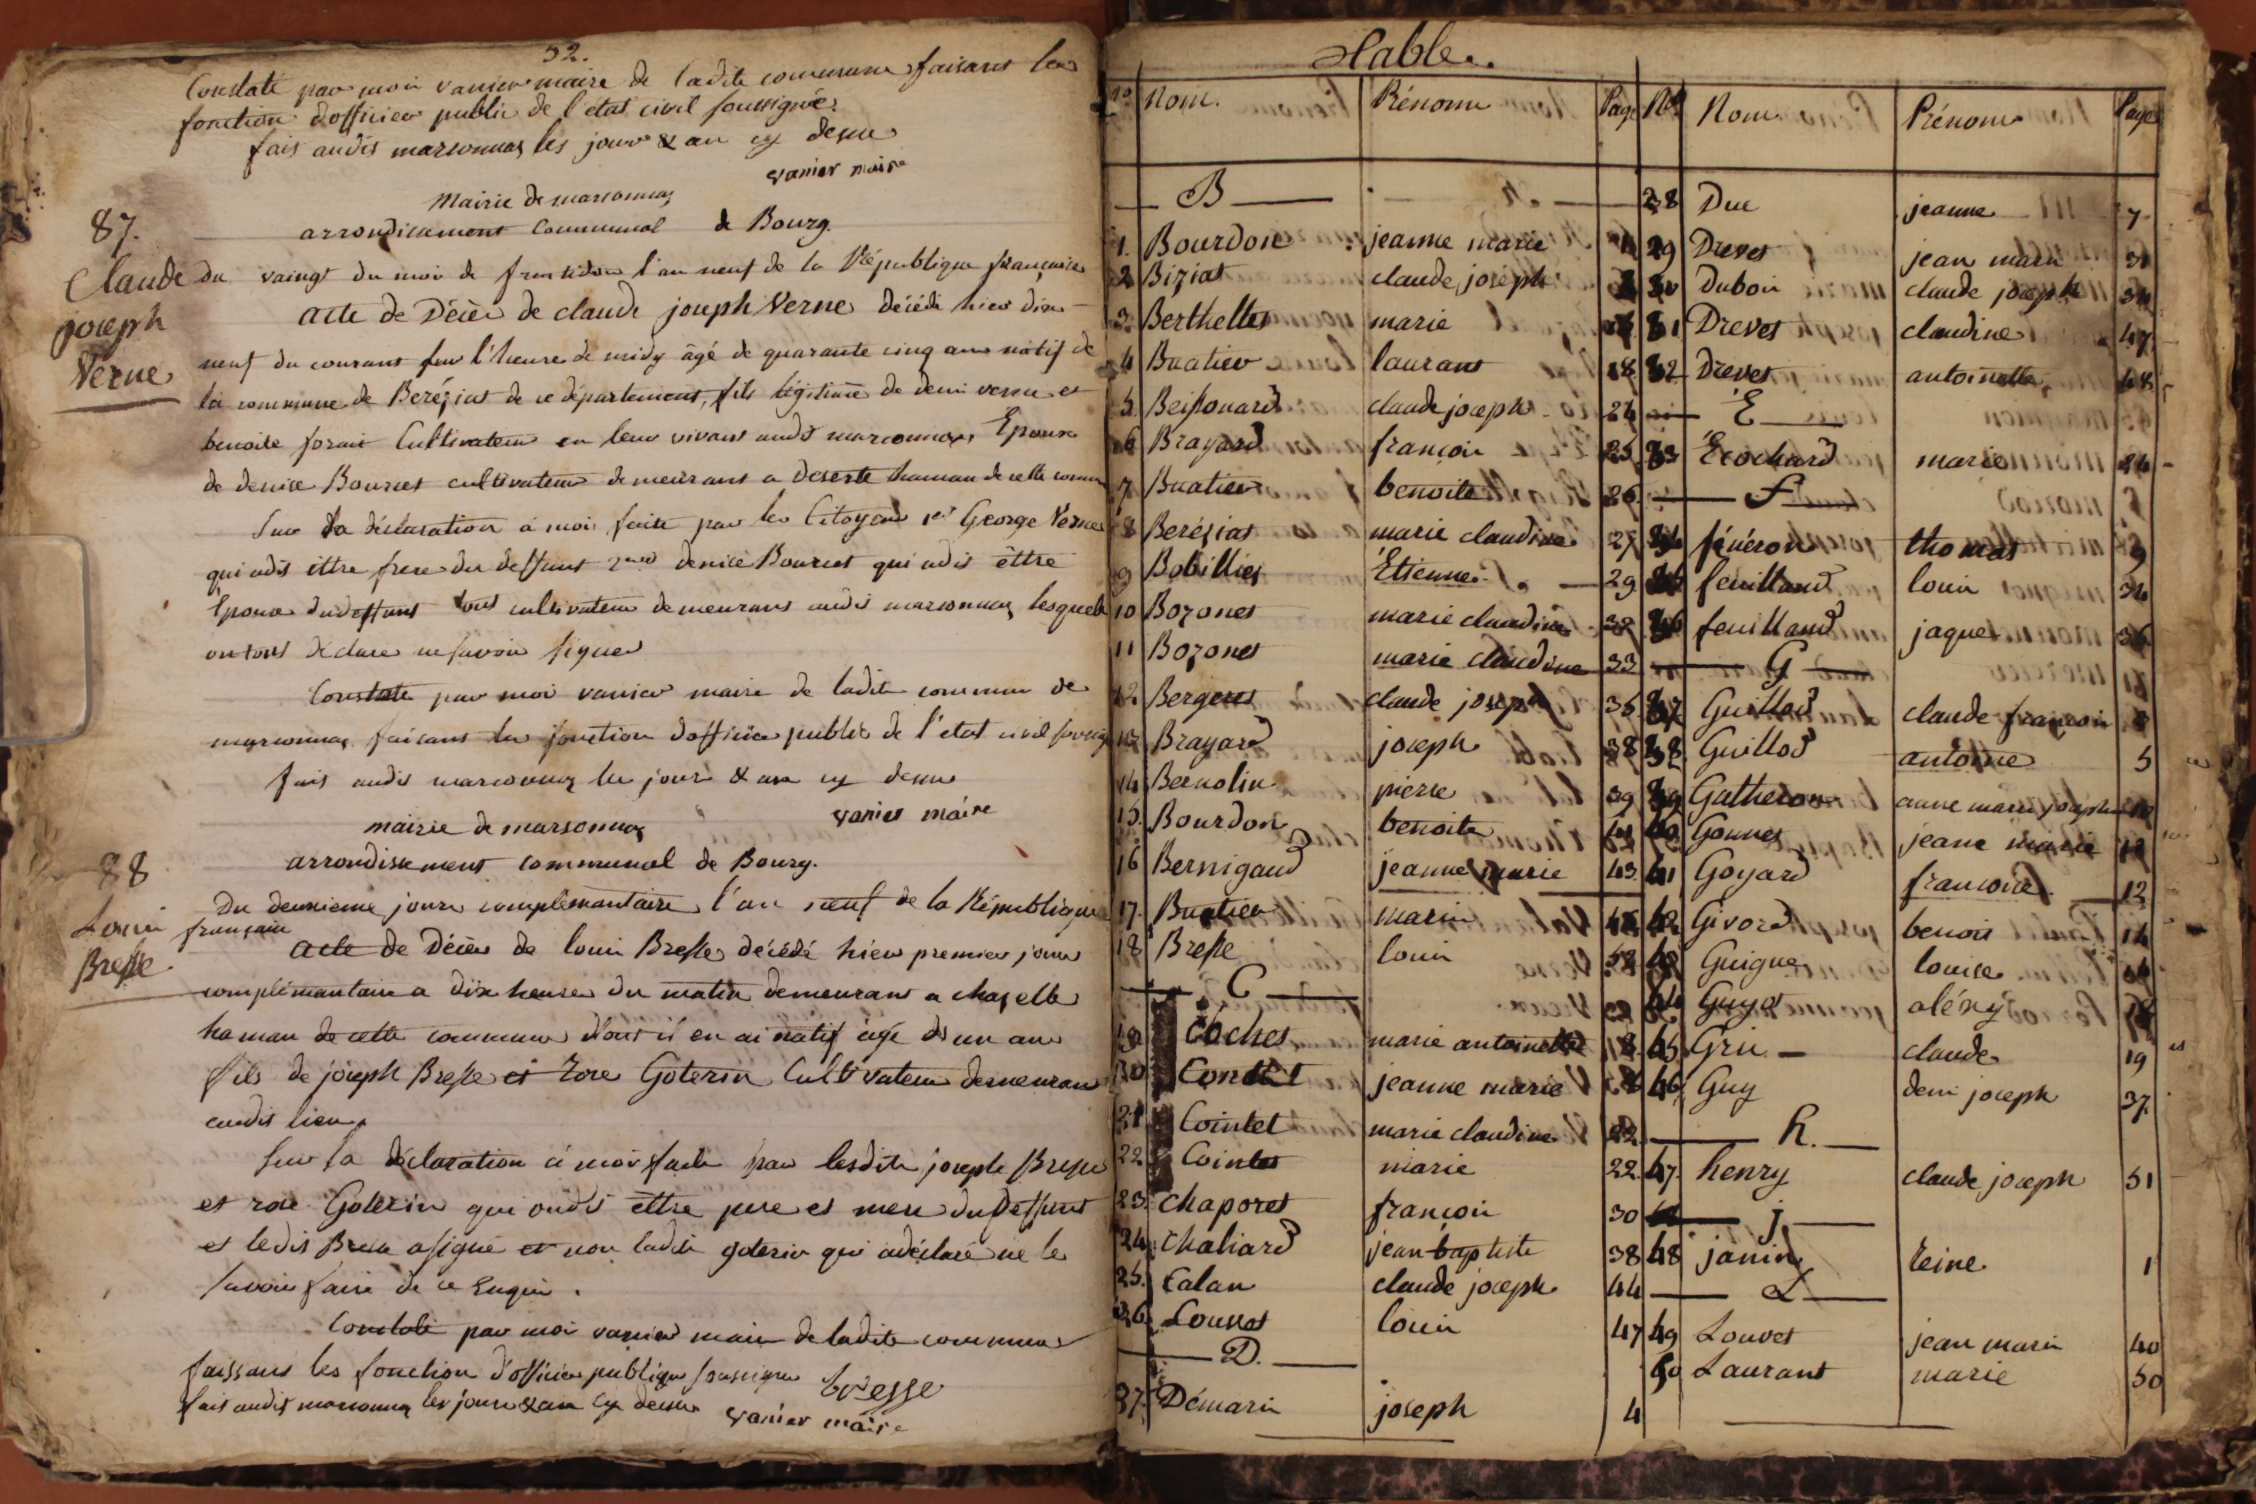 52.
Constaté par moi vanier maire de ladite commune faisant les
fonction d'officier public de l'etat civil soussigné.
fait audit marsonnas les jour & an cy dessu
vanier maire
87.
Claude
joseph
Verne
Mairie de marsonnas
arrondicement Communal de Bourg.
du vaingt du moi de fructidor l'an neuf de la République française
acte de Décès de claude joseph Verne décédé hier dix
neuf du courant sur l'heure de midy âgé de quarante cinq ans natif de
la commune de Beréziat de ce département, fils légitime de deni verne et
benoite forait Cultivateur en leur vivant audit marsonnas, Epoux
de denise Bourcet cultivateur demeurant a deserte hamau de cette comm
Sur la déclaration a moi faite par les Citoyens 1er George Verne
qui a dit ettre frere du deffunt 2me denise Bourcet qui a dit êttre
Epouse du deffunt tous cultivateur demeurant audit marsonnas lesquels
on tous déclaré ne savoir signer
Constaté par moi vanier maire de ladite commune de
marsonnas faisant les fonction d'officier public de l'etat civil soussig
fait audit marsonnas les jour & an cy dessu
vanier maire
88
Louis
Bresse
mairie de marsonnas
arrondissement communal de Bourg.
Du deuxieme jour complémantaire l'an neuf de la République
française
acte de Décès de louis Bresse décédé hier premier jour
complémantaire a dix heure du matin demeurant a chazelle
hamau de cette commune d'out il en ai natif agé de un an
fils de joseph Bresse et roze Goterin Cultivateur demeurant
audit lieu.
Sur la déclaration a moi faite par lesdits joseph Bresse
et roze Goterin qui on dit êttre pere et mere du deffunt
et ledit Bresse a signé et non ladite goterin qui a déclaré ne le
savoir faire de ce Enquis.
Constaté par moi vanier maire de ladite commune
faissant les fonction d'officier publique soussigné
fait audit marsonnas les jour & an cy dessu
bresse
vanier maire
Table.
No. Nom. Prénom Page
B
1. Bourdon jeanne marie 4
2 Biziat claude joseph
3. Berthellet marie
4 Buatier laurant 18
5. Beissonard claude joseph 24
6 Brayard françoi 25
7. Buatier benoite 26
8 Beréziat marie claudine 27
9 Bobillier Etienne 29
10 Bozonet marie claudine 32
11 Bozonet marie claudine 33
12. Bergeret claude joseph 35
13. Brayard joseph 38
14 Bernolin pierre 39
15. Bourdon benoite
16 Bernigaud jeanne marie 43
17. Buatier marie
18 Bresse louis 52
C
19 Cochet marie antoinette 18
20 Contet jeanne marie
21 Cointet marie claudine 22
22 Cointet marie 22
23. Chaporet françoi 30
24. Chaliard jean baptiste 38
25. Calan claude joseph 44
26. Couvet louis 47
D.
27. Démarin joseph 4
No. Nom Prénom Page
28 Duc jeanne 7
29 Drevet jean marie 31
30 Duboi claude joseph 34
31 Drevet claudine 47
32 Drevet antoinette 48
E
33 Ecochard marie 24
F
34 févéron thomas 9
35 feuilland louis 34
36 feuilland jaque 36
G
37 Guillod claude françoi
38 Guillod antoine 5
39 Gatheron anne marie joseph 10
40 Gonnet jeane marie 12
41 Goyard francoise 12
42 Givord benoit 14
43 Guigue louise 16
44 Guyot aléxy
45 Gri claude 19
46 Guy deni joseph 37
h.
47. henry claude joseph 51
j
48 janin reine 1
L
49 Louvet jean marie 40
50 Laurant marie 50